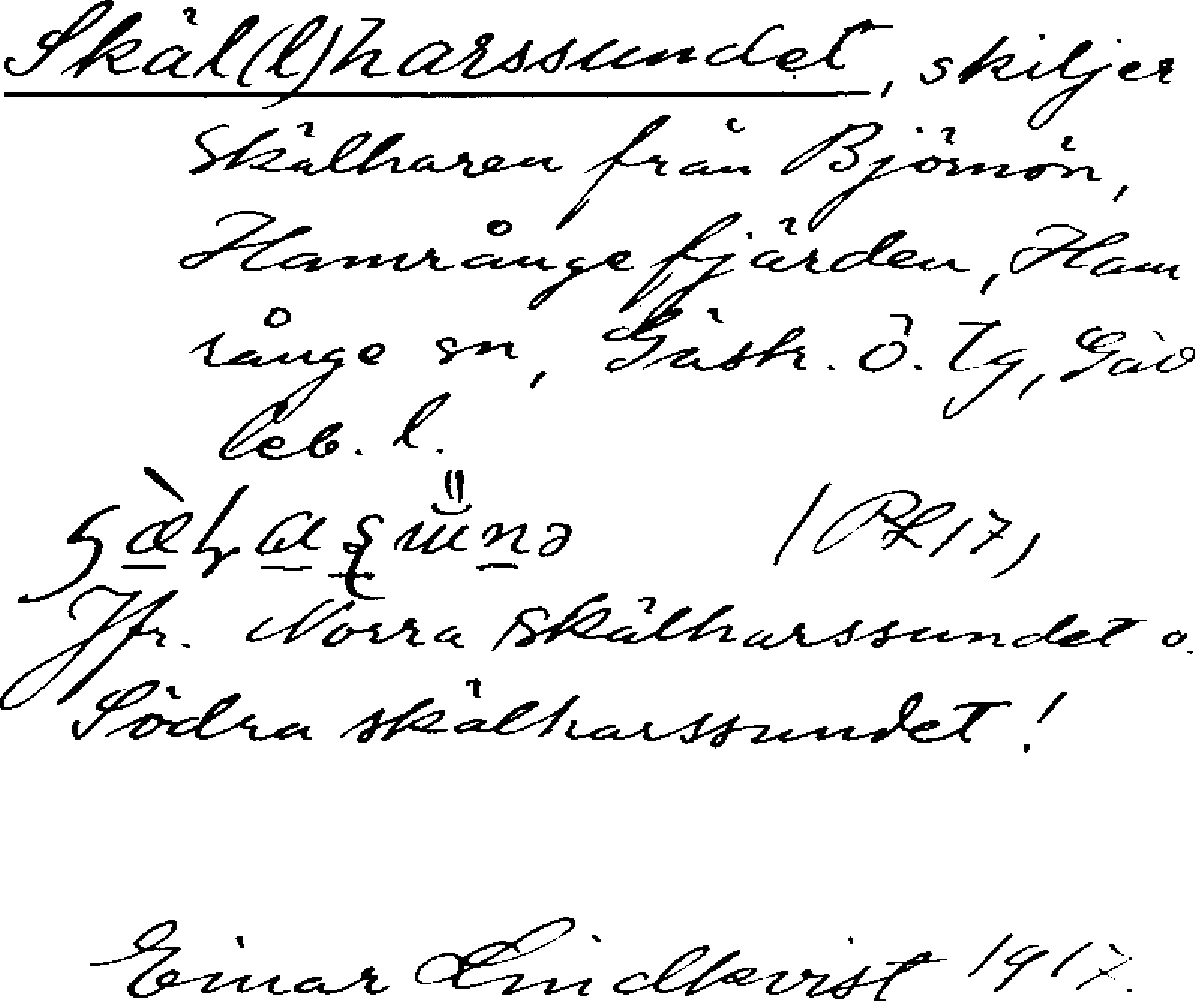 Skäl(l)harssundet, skiljer
Skälharen från Björnön,
Hamrångefjärden, Ham
rånge sn, Gästr. Ö. Tg, Gäv
leb. l.
Jfr. Norra Skälharssundet o.
Södra skälharssundet!
Einar Lindkvist 1917.